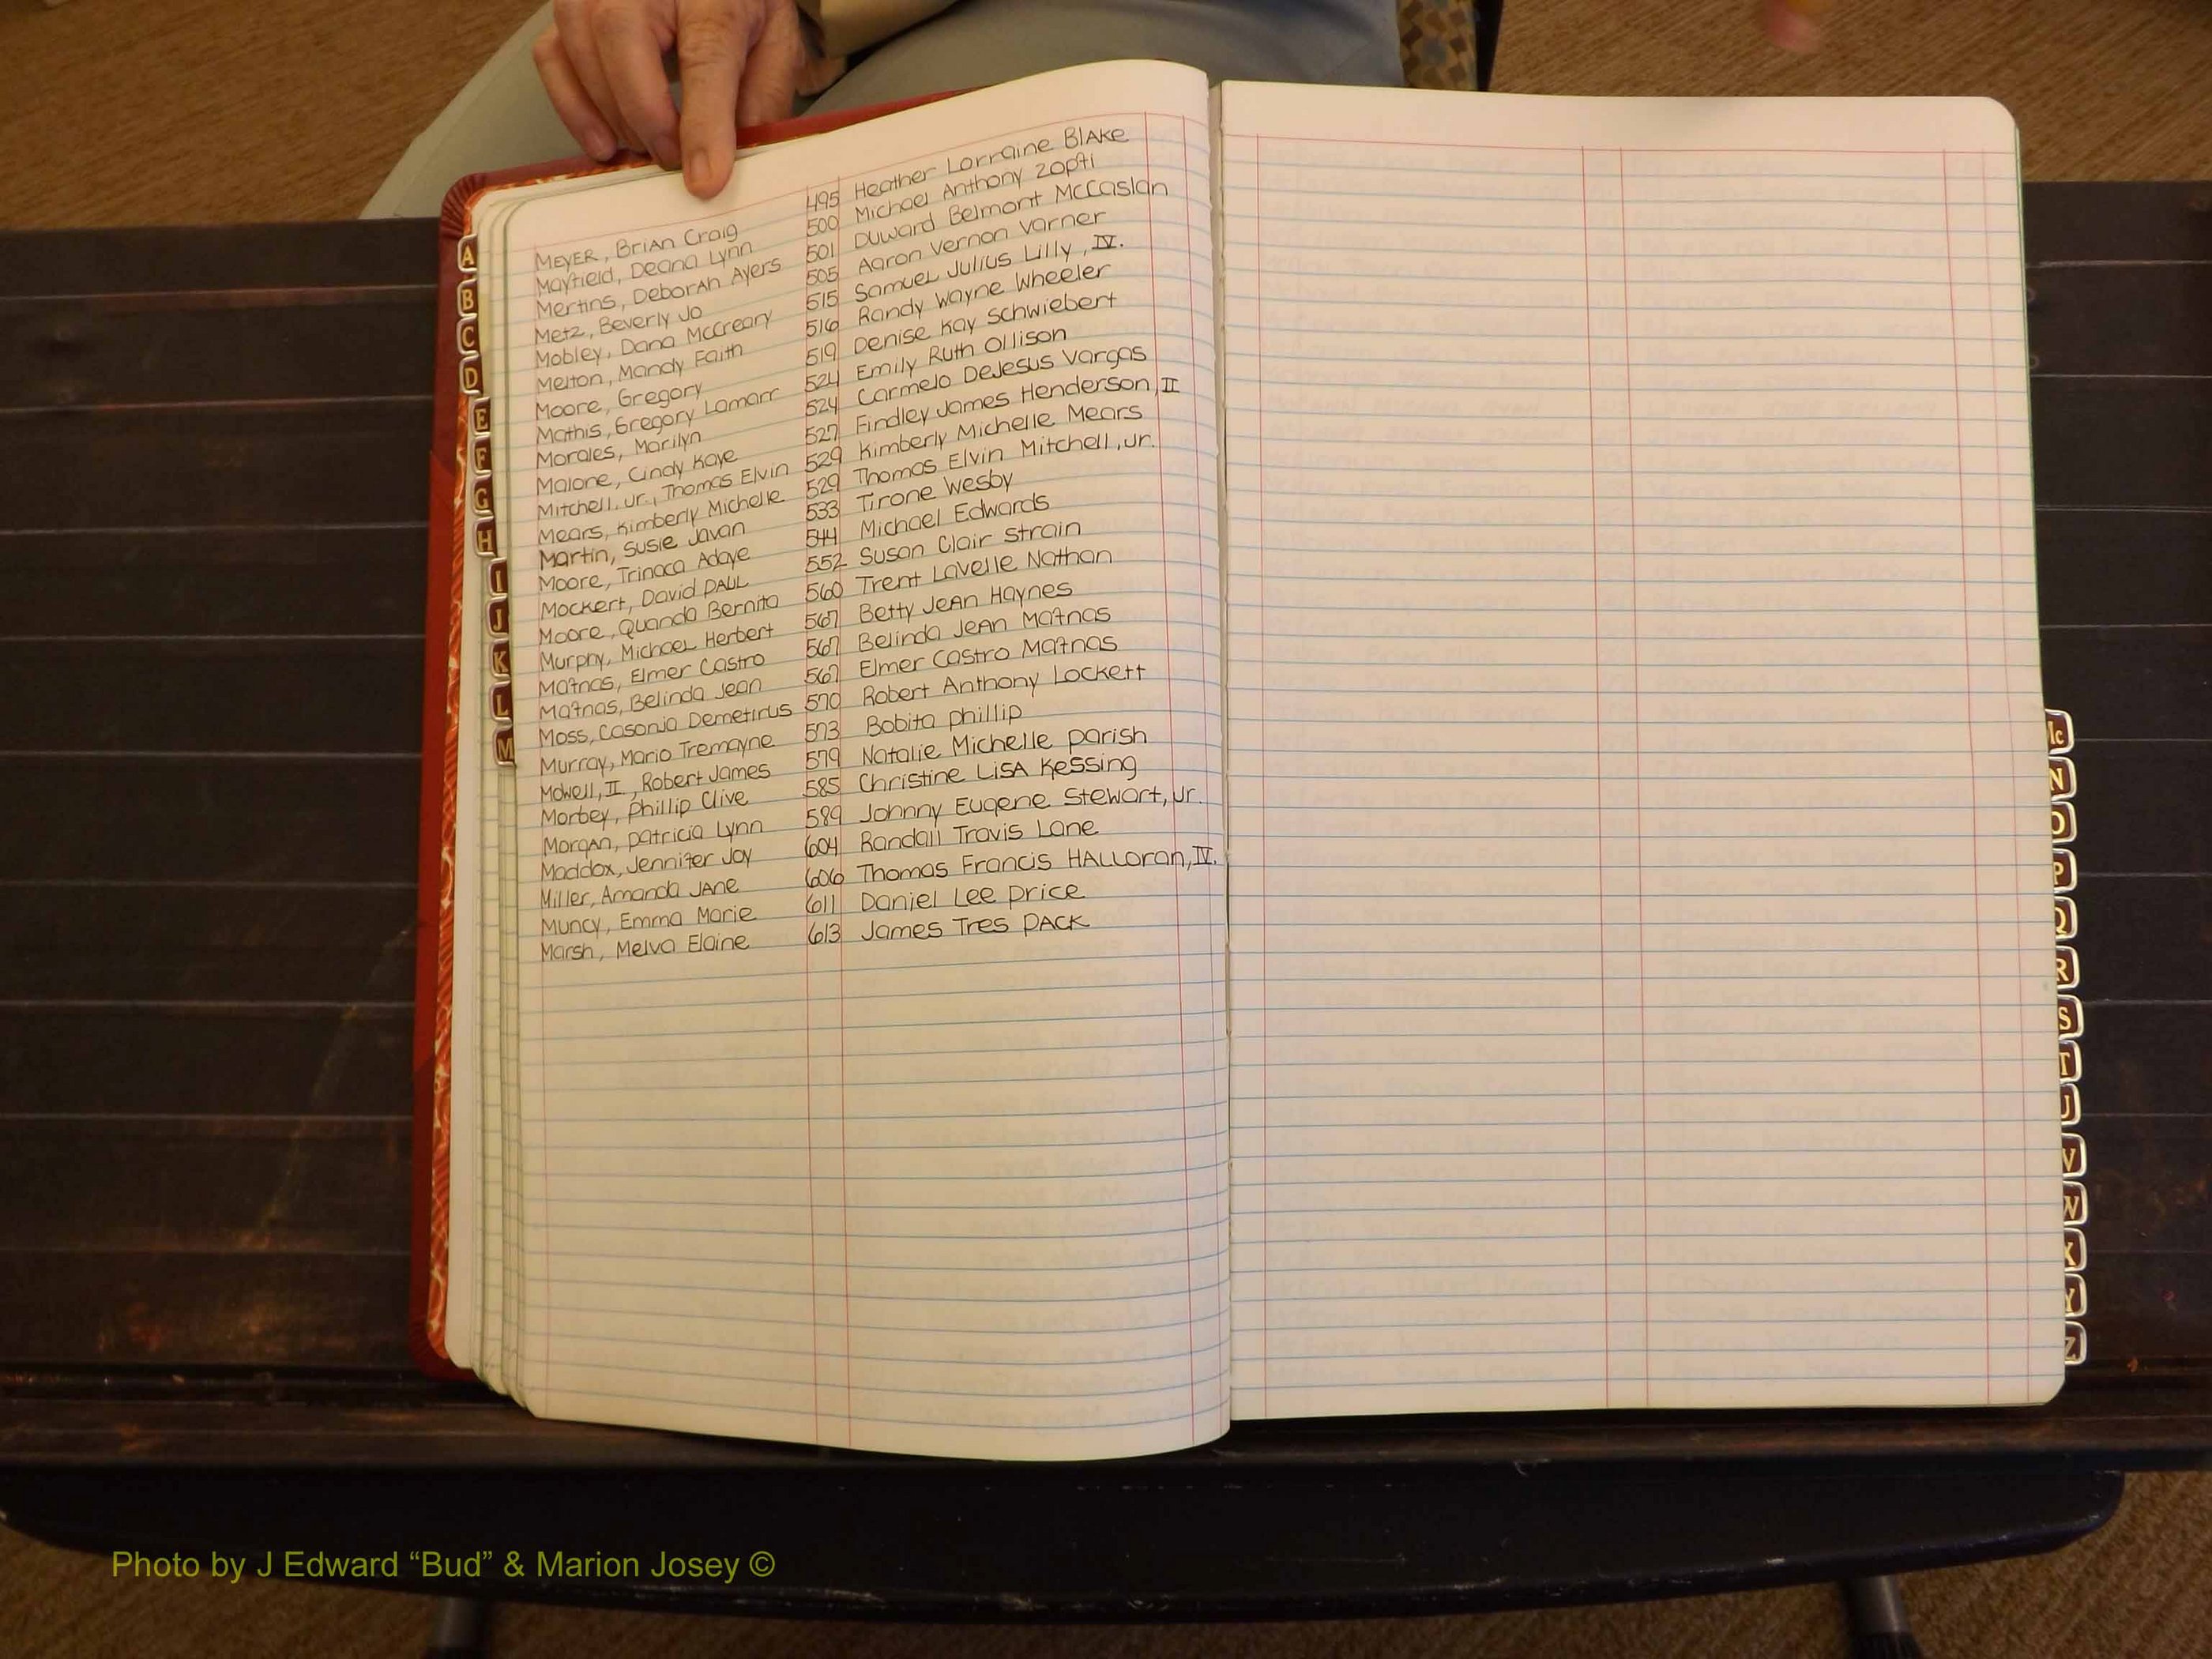 MEYER, BriAn Craig 495 Heather Lorraine BlAKe
Mayfield, Deana Lynn 500 Michael Anthony Zopfi
Mertins, DeborAh Ayers 501 Duward Belmont McCaslan
Metz, Beverly Jo 505 Aaron Vernon Varner
Mobley, Dana McCreary 515 Samuel Julius Lilly, IV.
Melton, Mandy Faith 516 Randy Wayne Wheeler
Moore, Gregory 519 Denise Kay Schwiebert
Mathis, Gregory Lamarr 524 Emily Ruth Ollison
Morales, Marilyn 524 Carmelo DeJesus Vargas
Malone, Cindy Kaye 527 Findley James Henderson, II
Mitchell, Jr., Thomas Elvin 529 Kimberly Michelle Mears
Mears, Kimberly Michelle 529 Thomas Elvin Mitchell, Jr.
Martin, Susie Javan 533 Tirone Wesby
Moore, Trinaca Adaye 544 Michael Edwards
Mockert, David PAUL 552 Susan Clair Strain
Moore, Quanda Bernita 560 Trent Lavelle Nathan
Murphy, Michael Herbert 567 Betty JeAn Haynes
Mafnas, Elmer Castro 567 Belinda JeAn Mafnas
Mafnas, Belinda Jean 567 Elmer Castro Mafnas
Moss, Casonja Demetirus 570 Robert Anthony Lockett
Murray, Mario Tremayne 573 Bobita Phillip
Mowell, II, Robert James 579 Natalie Michelle Parish
Morbey, Phillip Clive 585 Christine LiSA Kessing
MorgAn, Patricia Lynn 589 Johnny Eugene Stewart, Jr.
Maddox, Jennifer Joy 604 Randall Travis Lane
Miller, Amanda JANe 606 Thomas Francis HALLoran, IV.
Muncy, Emma Marie 611 Daniel Lee Price
Marsh, Melva Elaine 613 James Tres PACK
A
B
C
D
E
F
G
H
I
J
K
L
M
Mc
N
O
P
Q
R
S
T
U
V
W
X
Y
Z
Photo by J Edward “Bud” & Marion Josey ©